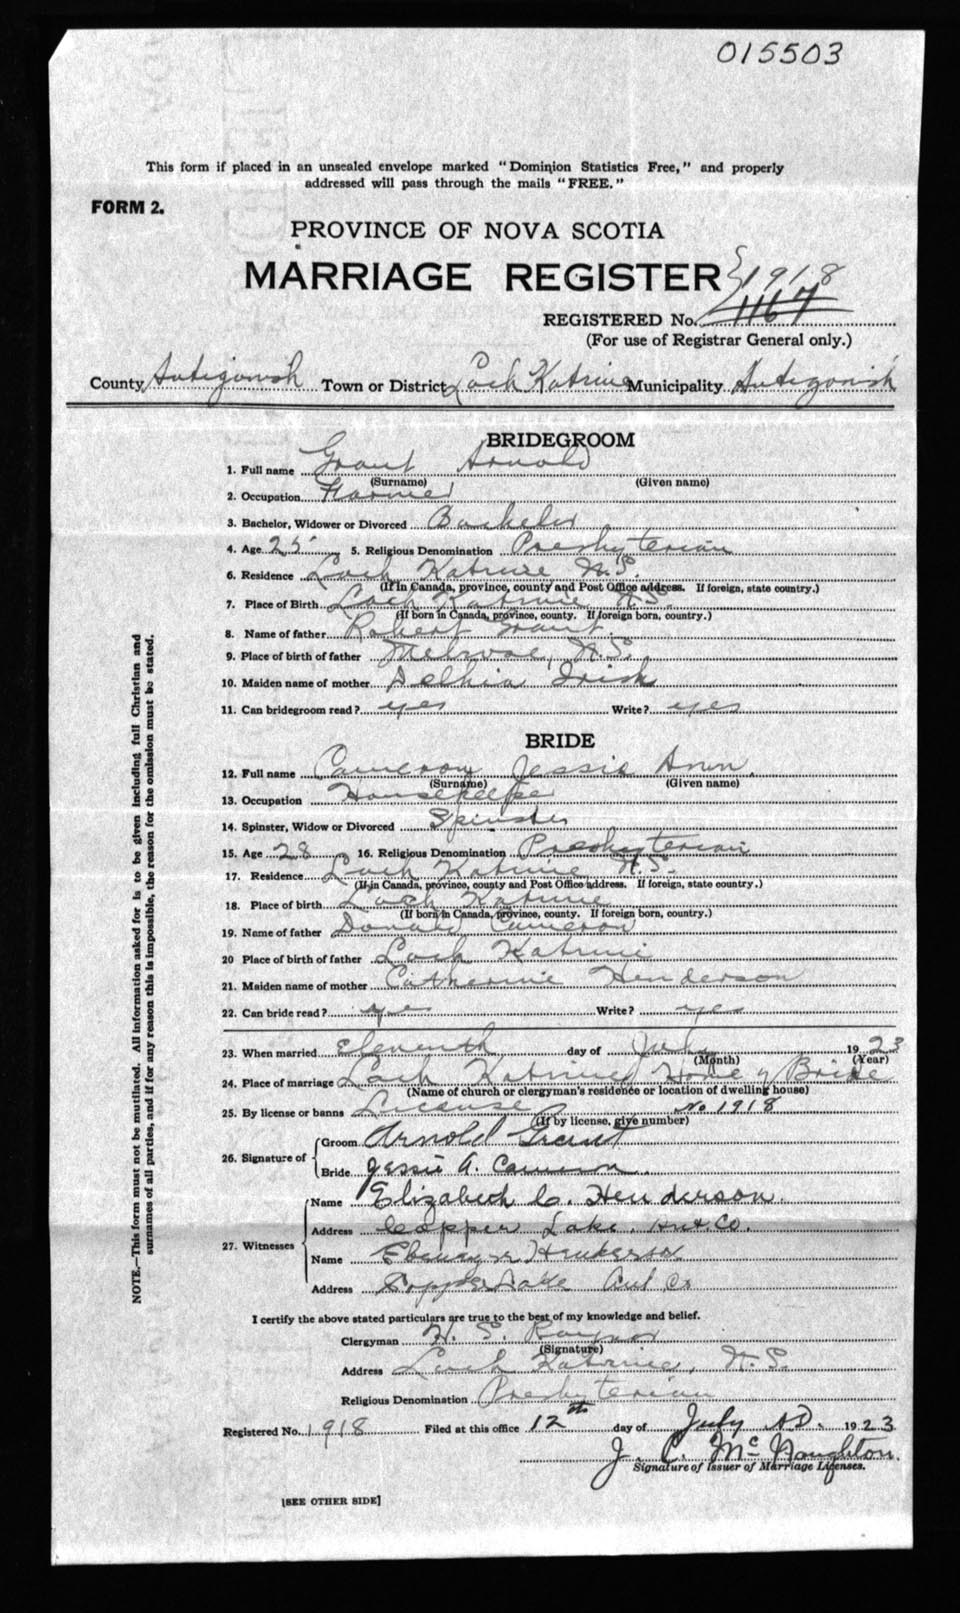 015503
This form if placed in an unsealed envelope marked "Dominion Statistics Free," and properly
addressed will pass through the mails "FREE."
FORM 2.
PROVINCE OF NOVA SCOTIA
MARRIAGE REGISTER
1918
REGISTERED No. 1167
(For use of Registrar General only.)
County Antigonish Town or District Loch Katrine Municipality Antigonish
BRIDEGROOM
1. Full name Grant Arnold
(Surname) (Given name)
2. Occupation Farmer
3. Bachelor, Widower or Divorced Bachelor
4. Age 25 5. Religious Denomination Presbyterian
6. Residence Loch Katrine N.S.
(If in Canada, province, county and Post Office address. If foreign, state country.)
7. Place of Birth Loch Katrine N.S.
(If born in Canada, province, county. If foreign born, country.)
8. Name of father Robert Grant
9. Place of birth of father Melrose, N.S.
10. Maiden name of mother Irish
11. Can bridegroom read? yes Write? yes
BRIDE
12. Full name Cameron Jessie Ann
(Surname) (Given name)
13. Occupation Housekeeper
14. Spinster, Widow or Divorced Spinster
15. Age 28 16. Religious Denomination Presbyterian
17. Residence Loch Katrine N.S.
(If in Canada, province, county and Post Office address. If foreign, state country.)
18. Place of birth Loch Katrine
(If born in Canada, province, county. If foreign born, country.)
19. Name of father Donald Cameron
20 Place of birth of father Loch Katrine
21. Maiden name of mother Catherine Henderson
22. Can bride read? yes Write? yes
23. When married Eleventh day of July 1923
(Month) (Year)
24. Place of marriage Loch Katrine Home of Bride
(Name of church or clergyman's residence or location of dwelling house)
25. By license or banns License No 1918
(If by license, give number)
26. Signature of
Groom Arnold Grant
Bride Jessie A. Cameron
27. Witnesses
Name Elizabeth C. Henderson.
Address Copper Lake. Ant. Co.
Name Ebenezer Henderson
Address Copper Lake Ant Co
I certify the above stated particulars are true to the best of my knowledge and belief.
Clergyman H. S. Raynor
(Signature)
Address Loch Katrine, N.S.
Religious Denomination Presbyterian
Registered No. 1918 Filed at this office 12th day of July A.D. 1923
J. C. McNaughton.
Signature of Issuer of Marriage Licenses.
[SEE OTHER SIDE]
NOTE.—This form must not be mutilated. All information asked for is to be given including full Christian and
surnames of all parties, and if for any reason this is impossible, the reason for the omission must be stated.